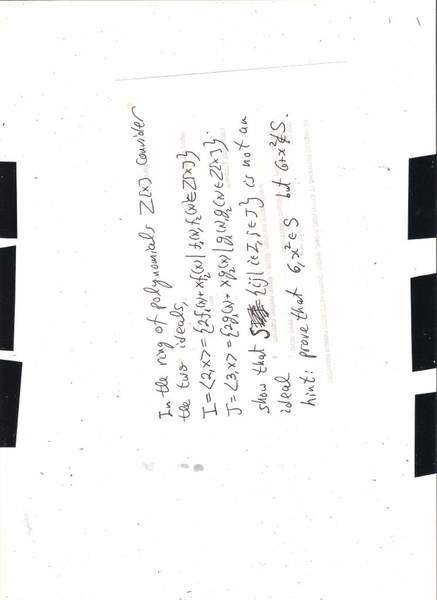 In the ring of polynomials Z[x] consider
the two ideals,
I = <2,x> = {2f₁(x)+xf₂(x) | f₁(x), f₂(x) ∈ Z[x]}
J = <3,x> = {2g₁(x)+ xg₂(x) | g₁(x), g₂(x) ∈ Z[x]}.
show that S = {ij | i∈I, j∈J} is not an
ideal
hint: prove that 6, x² ∈ S but 6+x² ∉ S.